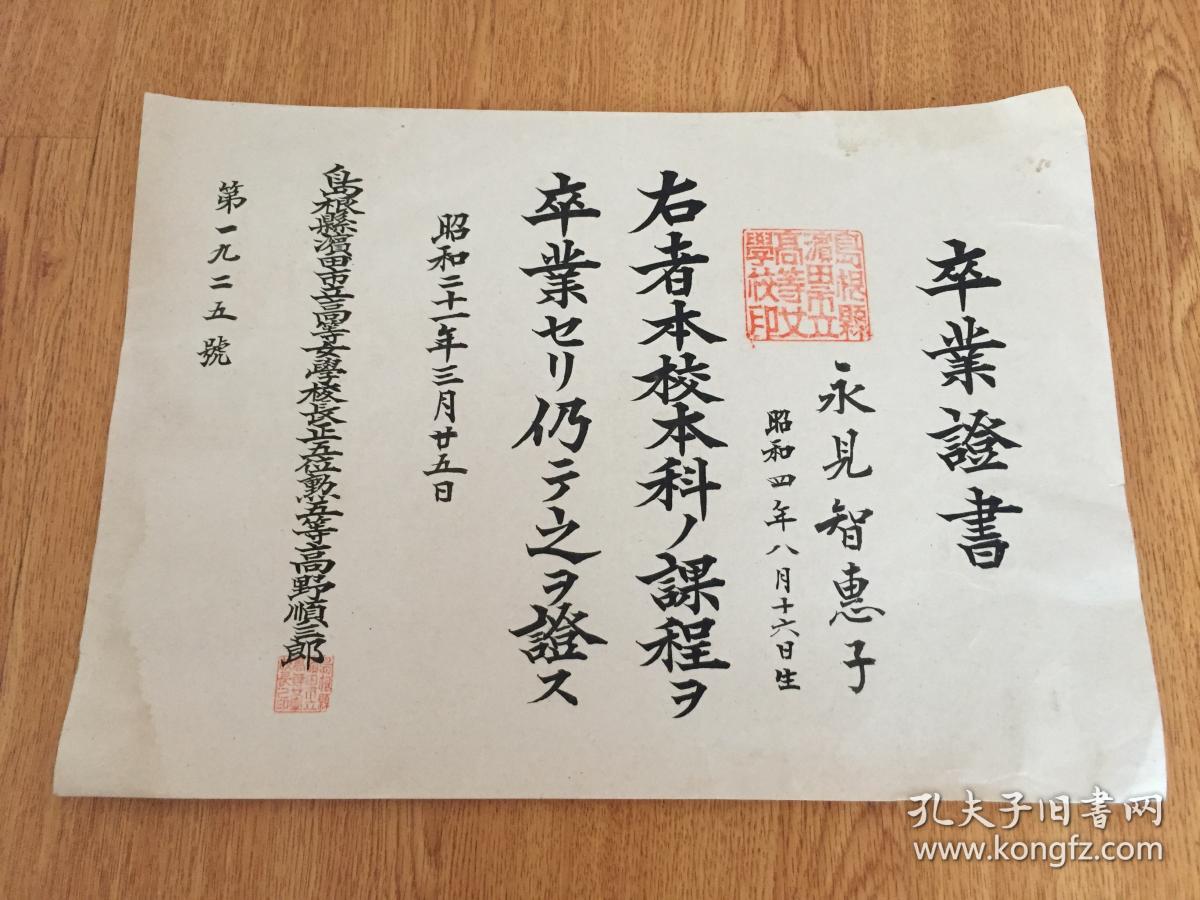 卒業證書
永見智惠子
昭和四年八月十六日生
島根縣
濱田市立
高等女
學校印
右者本校本科ノ課程ヲ
卒業セリ仍テ之ヲ證ス
昭和二十一年三月廿五日
島根縣濱田市立高等女學校長正五位勲五等高野順三郎
第一九二五號
孔夫子旧书网
www.kongfz.com